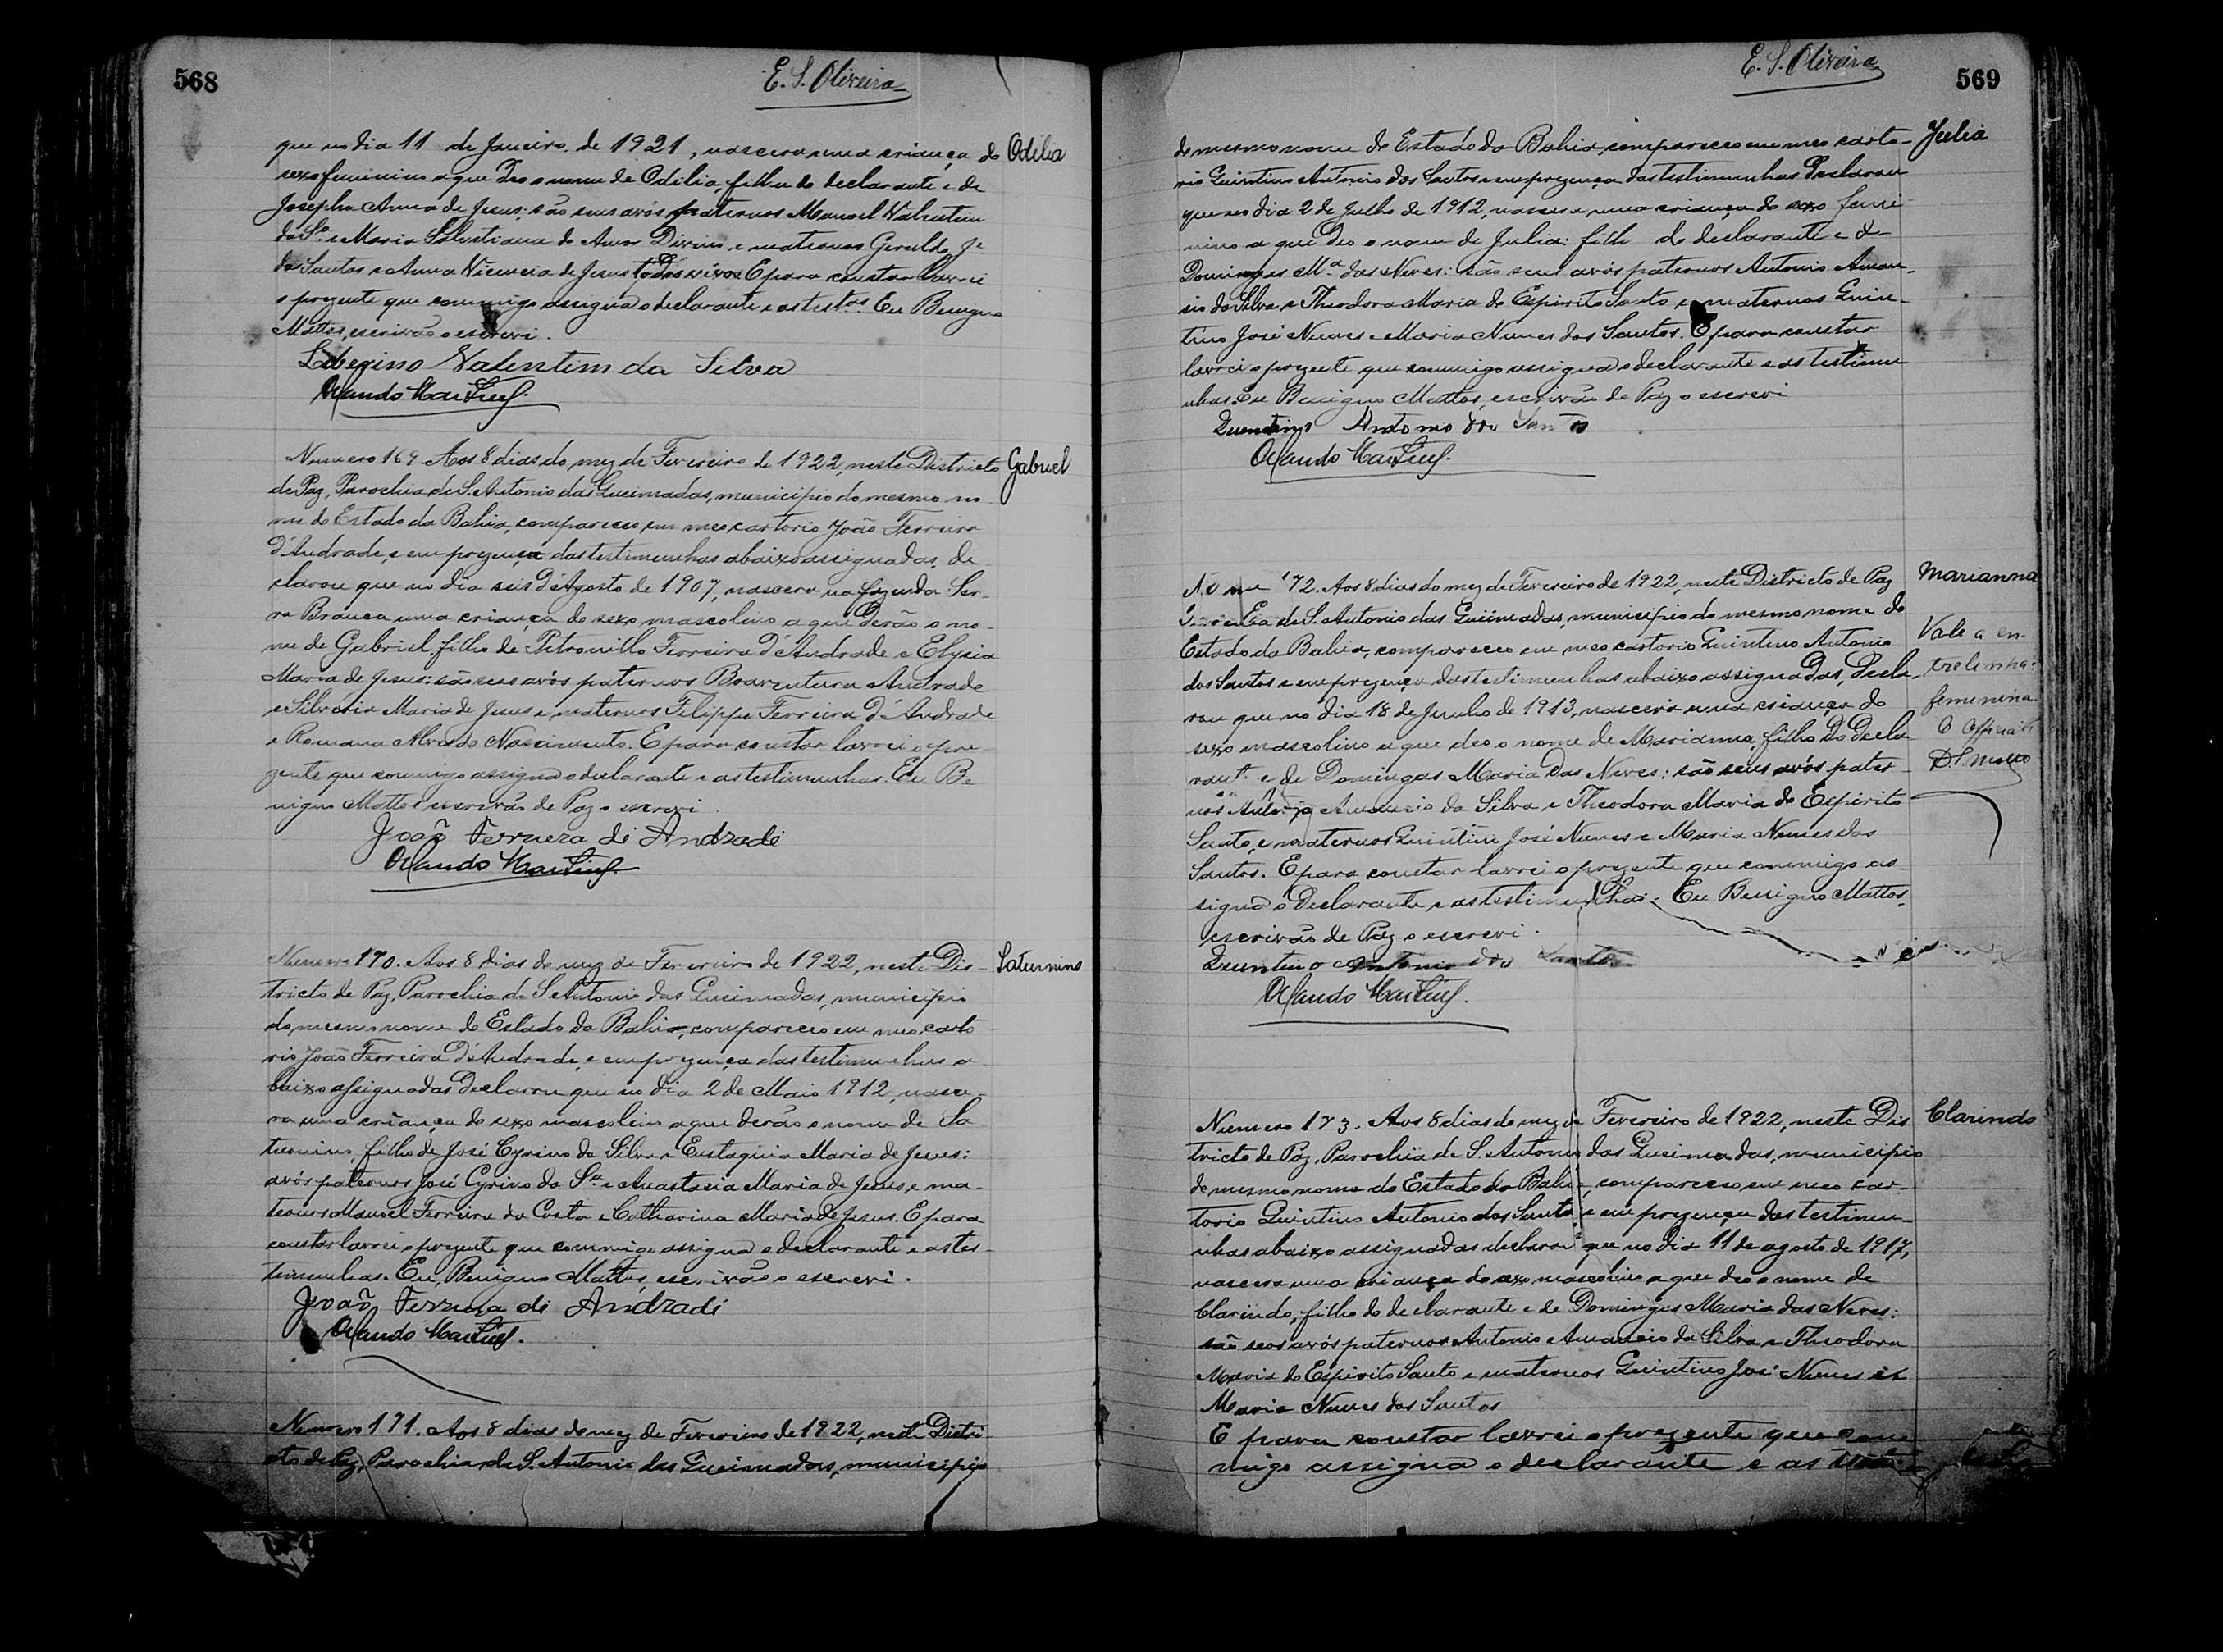 568
E. S. Oliveira
que no dia 11 de Janeiro de 1921, nascera uma criança do Odilia
sexo feminino a que deo o nome de Odilia, filha do declarante e de
Josepha Anna de Jesus: são seus avós paternos Manoel Valentim
da Sª e Maria Salustiana do Amor Divino, e maternos Geraldo Je
dos Santos e Anna Vicencia de Jesus todos vivos E para constar lavrei
o prezente que commigo assigna o declarante e as testas. Eu Benigno
Mattos, escrivão o escrevi.
Liberino Valentim da Silva
Orlando Martins
Numero 169. Aos 8 dias do mez de Fevereiro de 1922, neste Districto Gabriel
de Paz, Parochia de S. Antonio das Queimadas, municipio do mesmo no
me do Estado da Bahia, compareceo em meo cartorio João Ferreira
d'Andrade, e em prezença das testimunhas abaixo assignadas, de
clarou que no dia seis d'Agosto de 1907, nascera na fazenda Ser-
ra Branca uma criança do sexo mascolino a que derão o no-
me de Gabriel, filho de Petronillo Ferreira d'Andrade e Elysia
Maria de Jesus: são seus avós paternos Boaventura Andrade
e Silveria Maria de Jesus e maternos Filippe Ferreira d'Andrade
e Romana Alves do Nascimento. E para constar lavrei o pre-
zente que commigo assigna o declarante e as testimunhas. Eu Be
nigno Mattos escrivão de Paz o escrevi
João Ferrera di Andradi
Orlando Martins
Numero 170. Aos 8 dias do mez de Fevereiro de 1922, neste Dis- Saturnino
tricto de Paz, Parochia de S. Antonio das Queimadas, municipio
do mesmo nome do Estado da Bahia, compareceo em meo carto
rio João Ferreira d'Andrade, e em prezença das testimunhas a
baixo assignadas declarou que no dia 2 de Maio 1912, nasce
ra uma criança do sexo mascolino a que derão o nome de Sa
turnino, filho de José Cyrino da Silva e Eustaquia Maria de Jesus:
avós paternos José Cyrino da Sª e Anastacia Maria de Jesus, e ma-
ternos Manoel Ferreira da Costa e Catharina Maria de Jesus. E para
constar lavrei o prezente que commigo assigna o declarante e as tes-
timunhas. Eu, Benigno Mattos, escrivão o escrevi.
João Ferrera di Andradi
Orlando Martins
Numero 171. Aos 8 dias do mez de Fevereiro de 1922, neste Distri
cto de Paz, Parochia de S. Antonio das Queimadas, municipio
E. S. Oliveira
569
do mesmo nome do Estado da Bahia, compareceo em meo carto- Julia
rio Quintino Antonio dos Santos e em prezença das testimunhas declarou
que no dia 2 de Julho de 1912, nascera uma criança do sexo femi-
nino a que deo o nome de Julia: filh do declarante e de
Domingas Mª das Neves: são seus avós paternos Antonio Aman-
cio da Silva e Theodora Maria do Espirito Santo, e maternos Quin-
tino José Nunes e Maria Nunes dos Santos. E para constar
lavrei o prezente que commigo assigna o declarante e as testimu
nhas. Eu Benigno Mattos, escrivão de Paz o escrevi
Quentino Antonio dos Santos
Orlando Martins
172. Aos 8 dias do mez de Fevereiro de 1922, neste Districto de Paz Marianna
de S. Antonio das Queimadas, municipio do mesmo nome do
Estado da Bahia, compareceo em meo cartorio Quintino Antonio
dos Santos e em prezença das testimunhas abaixo assignadas, decla-
rou que no dia 18 de Junho de 1913, nascera uma criança do
sexo mascolino a que deo o nome de Marianna, filho do decla
rante e de Domingas Maria das Neves: são seus avós pater-
nos Antonio Amancio da Silva e Theodora Maria do Espirito
Santo, e maternos Quintino José Nunes e Maria Nunes dos
Santos. E para constar lavrei o prezente que commigo as
signa o declarante e as testimunhas. Eu Benigno Mattos,
escrivão de Paz o escrevi.
Vale a en-
trelinha:
feminina.
O official
Quentino Antonio dos Santos
Orlando Martins
Numero 173. Aos 8 dias do mez de Fevereiro de 1922, neste Dis Clarindo
tricto de Paz, Parochia de S. Antonio das Queimadas, municipio
do mesmo nome do Estado da Bahia, compareceo em meo car-
torio Quintino Antonio dos Santos e em prezença das testimu-
nhas abaixo assignadas declarou que no dia 11 de agosto de 1917,
nascera uma criança do sexo mascolino a que deo o nome de
Clarindo, filho do declarante e de Domingas Maria das Neves:
são seos avós paternos Antonio Amancio da Silva e Theodora
Maria do Espirito Santo e maternos Quintino José Nunes e
Maria Nunes dos Santos
E para constar lavrei o prezente que com
migo assigna o declarante e as